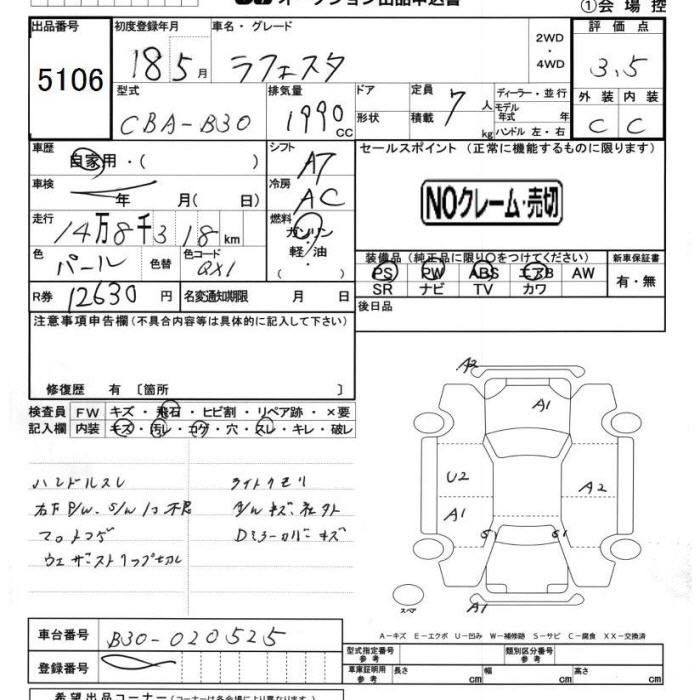 オークション出品申込書
①会場控
出品番号 初度登録年月 車名・グレード 2WD・4WD 評価点
5106 18 5月 ラフェスタ 3.5
型式 排気量 ドア 定員 ディーラー・並行 外装 内装
CBA-B30 1990cc 形状 積載 7人 kg モデル年式 年 ハンドル 左・右 C C
車歴 自家用・( ) シフト AT セールスポイント (正常に機能するものに限ります)
車検 年 月( 日) 冷房 AC NOクレーム・売切
走行 14万8千318km 燃料 ガソリン・軽・油・( )
色 パール 色替 色コード QX1
装備品 (純正品に限り○をつけてください) 新車保証書
PS PW ABS エアB AW 有・無
SR ナビ TV カワ
R券 12630円 名変通知期限 月 日 後日品
注意事項申告欄 (不具合内容等は具体的に記入して下さい)
修復歴 有 〔箇所 〕
検査員 FW キズ・飛石・ヒビ割・リペア跡・×要
記入欄 内装 キズ・汚レ・コゲ・穴・スレ・キレ・破レ
ハンドルスレ ライトクモリ
右F P/W. S/W
ウェザーストリップ Dミラーカバーキズ
A2
A1
U2 A2
A1
S1 S1
A1
スペア
A-キズ E-エクボ U-凹み W-補修跡 S-サビ C-腐食 XX-交換済
車台番号 B30-020525
型式指定番号 参考 類別区分番号 参考
登録番号 車庫証明用 参考 長さ cm 幅 cm 高さ cm
希望出品コーナー (コーナーは各会場により異なります)